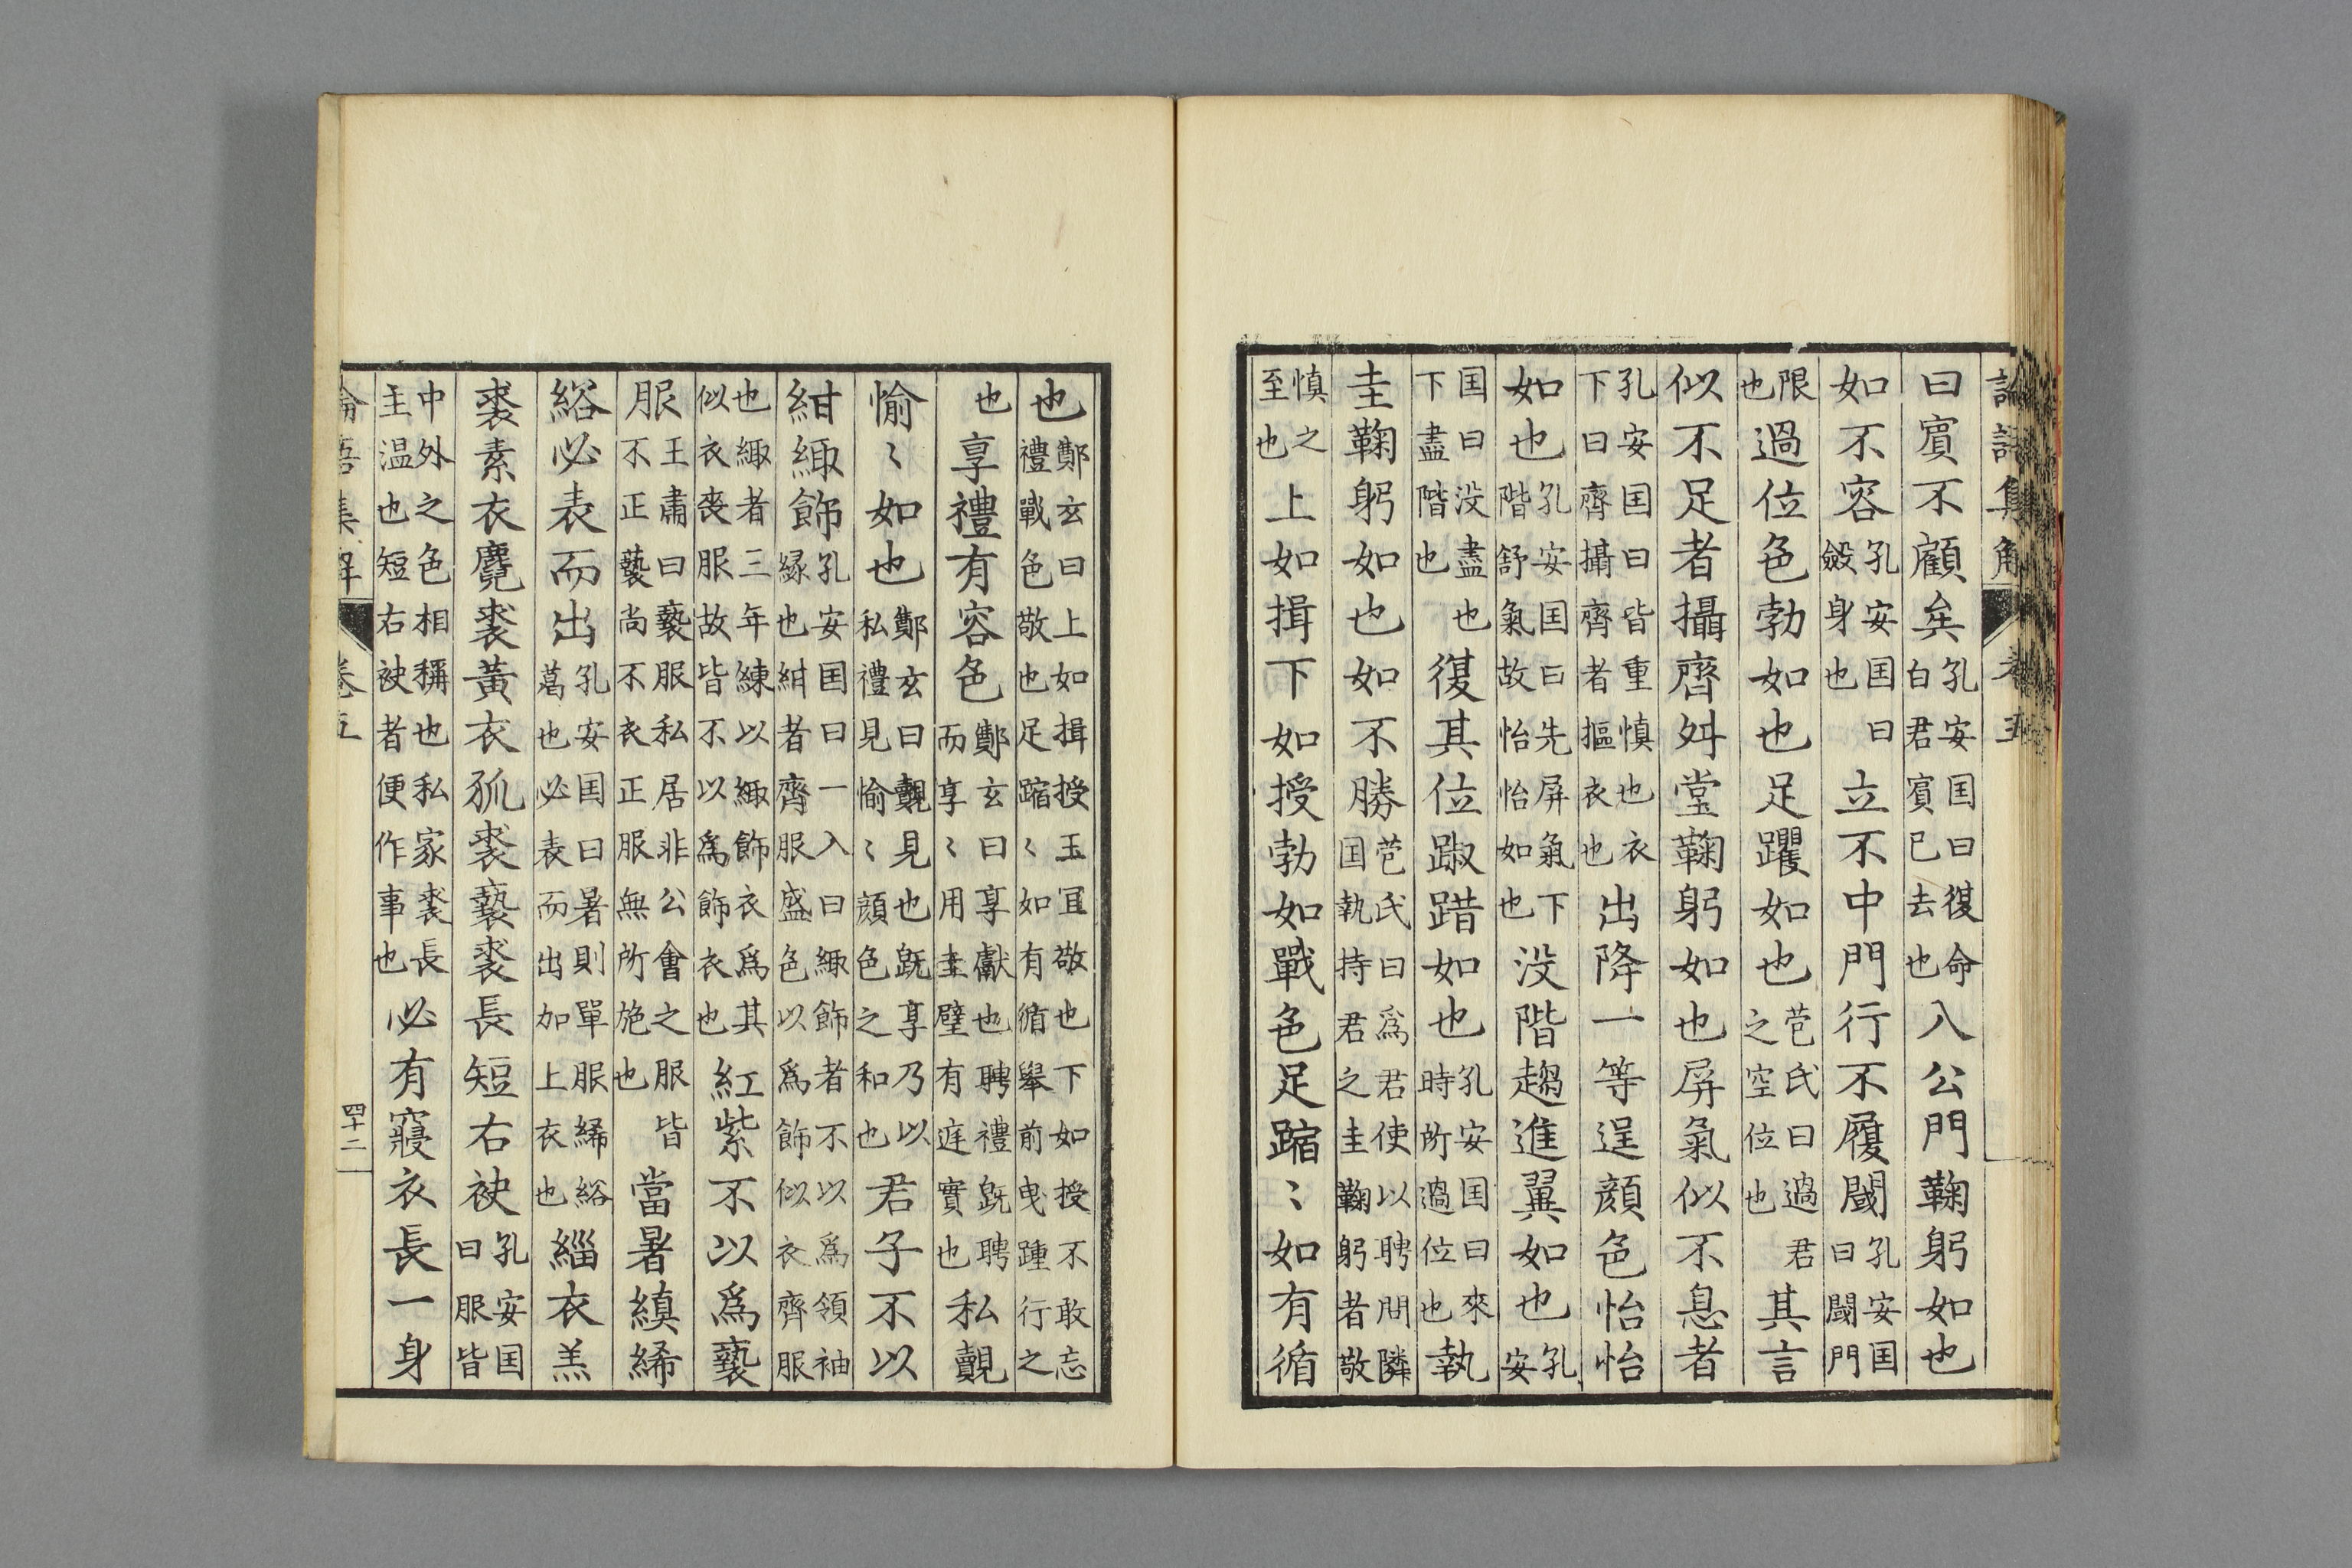 曰賓不顧矣孔安囯曰復命白君賓已去也入公門鞠躬如也
如不容孔安囯曰斂身也立不中門行不履閾孔安囯曰閾門
限也過位色勃如也足躩如也苞氏曰過君之空位也其言
似不足者攝齊舛堂鞠躬如也屏氣似不息者
孔安囯曰皆重慎也衣下曰齊攝齊者摳衣也出降一等逞顔色怡怡
如也孔安囯曰先屏氣下階舒氣故怡怡如也没階趨進翼如也孔安
囯曰没盡也下盡階也復其位踧踖如也孔安囯曰來時所過位也執
圭鞠躬如也如不勝苞氏曰爲君使以聘問隣囯執持君之圭鞠躬者敬
慎之至也上如揖下如授勃如戰色足蹜〻如有循
也鄭玄曰上如揖授玉宜敬也下如授不敢忘禮戰色敬也足蹜〻如有循舉前曳踵行之
也享禮有容色鄭玄曰享獻也聘禮既聘而享〻用圭璧有庭實也私覿
愉〻如也鄭玄曰覿見也既享乃以私禮見愉〻顔色之和也君子不以
紺緅飾孔安囯曰一入曰緅飾者不以爲領袖緣也紺者齊服盛色以爲飾似衣齊服
也緅者三年練以緅飾衣爲其似衣喪服故皆不以爲飾衣也紅紫不以爲褻
服王肅曰褻服私居非公會之服皆不正褻尚不衣正服無所施也當暑縝絺
綌必表而出孔安囯曰暑則單服絺綌葛也必表而出加上衣也緇衣羔
裘素衣麑裘黃衣狐裘褻裘長短右袂孔安囯曰服皆
中外之色相稱也私家裘長主温也短右袂者便作事也必有寢衣長一身
論語集解 卷五 四十二